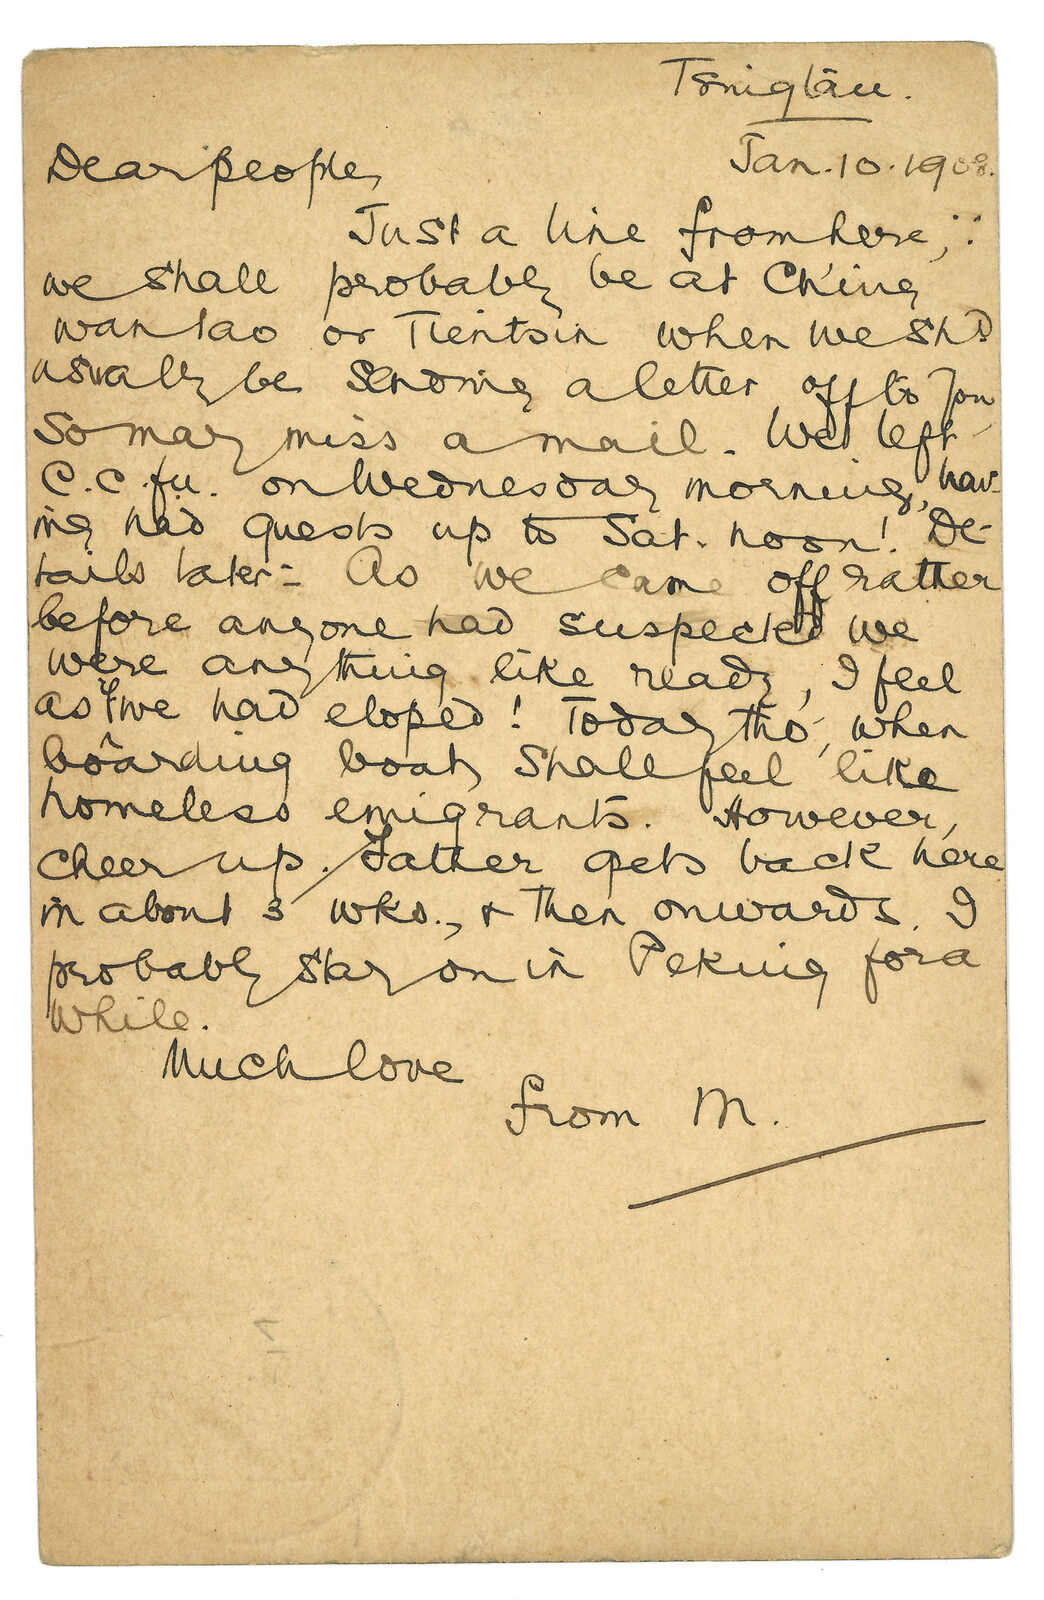 Tsingtau.
Jan. 10. 1908.
Dear people,
Just a line from here, ∵
we shall probably be at Ching
wantao or Tientsin when we shd
usually be sending a letter off to you,
so may miss a mail. We left
C.C.fu. on Wednesday morning, hav-
ing had guests up to Sat. noon! De-
tails later - As we came off rather
before anyone had suspected we
were anything like ready, I feel
as if we had eloped! Today tho', when
boarding boat, shall feel like
homeless emigrants. However,
cheer up. Father gets back here
in about 3 wks., & then onwards. I
probably stay on in Peking for a
while.
Much love
from M.